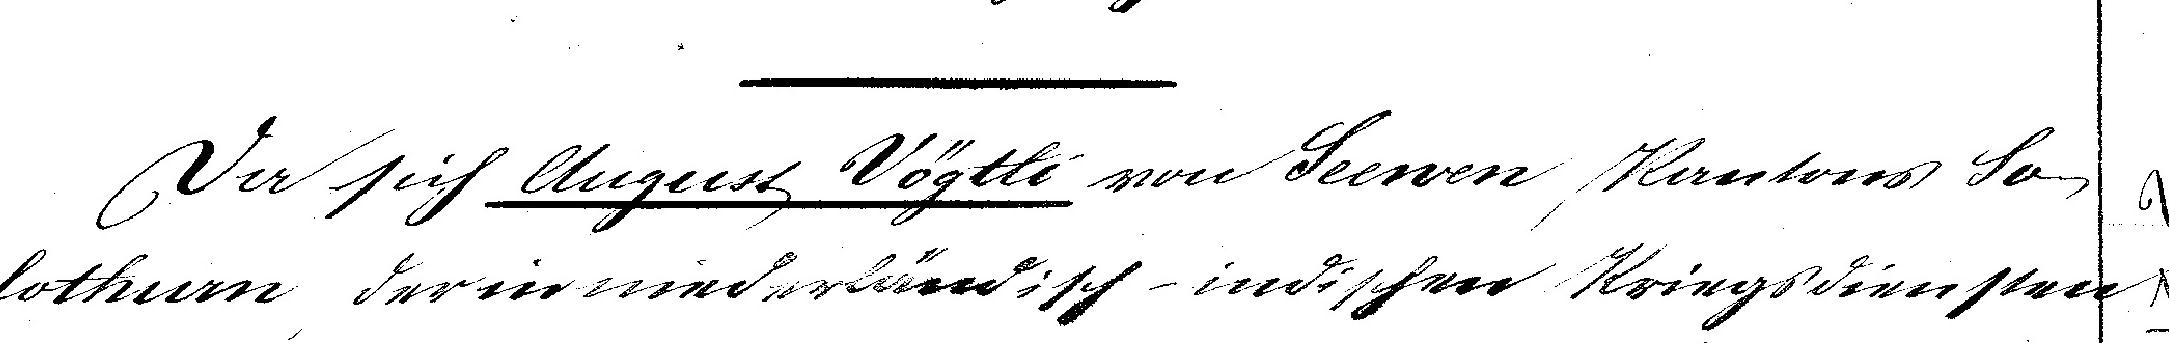 Da sich August Vögtli von Seewen Kantons So-
lothurn, der in niederländisch-indischen Kriegsdiensten